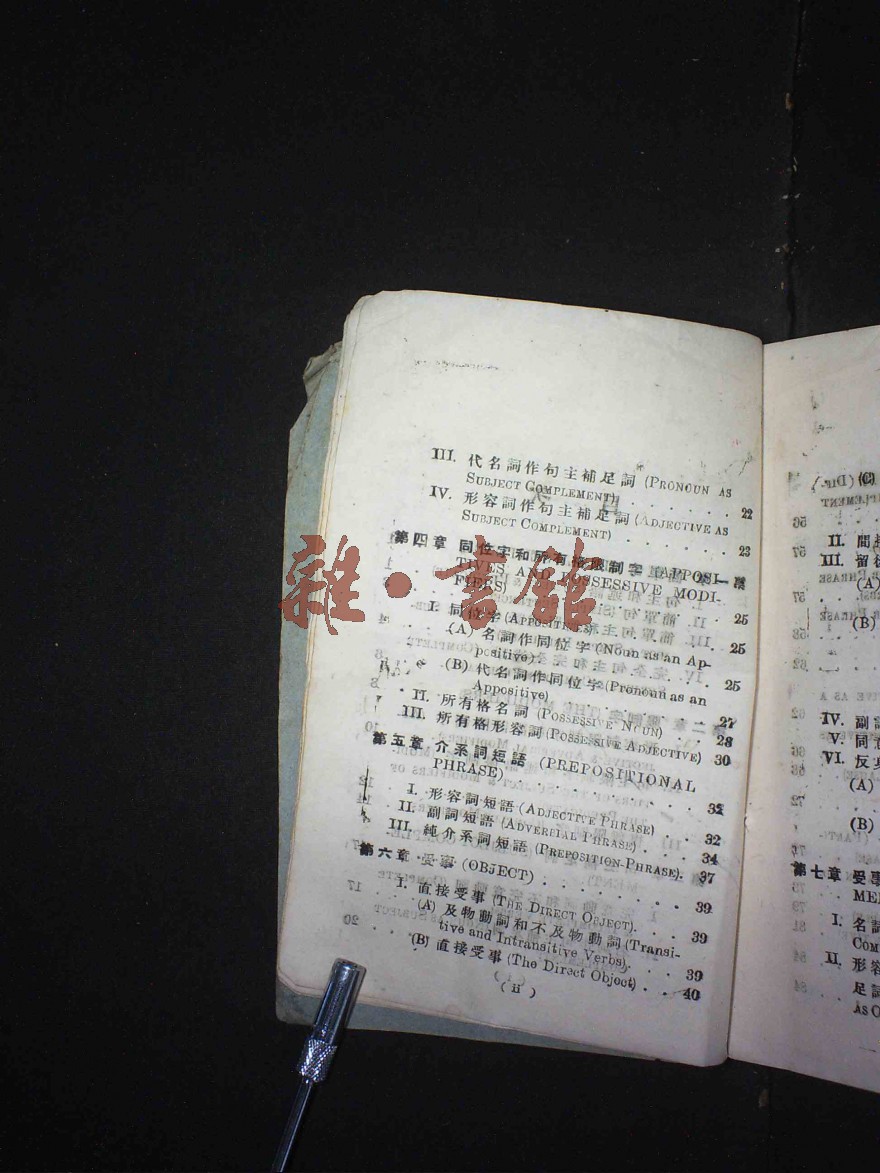 III. 代名詞作句主補足詞 (PRONOUN AS
SUBJECT COMPLEMENT) . . . . . . 22
IV. 形容詞作句主補足詞 (ADJECTIVE AS
SUBJECT COMPLEMENT) . . . . . . 23
第四章 同位字和所有格限制字 (APPOSI-
TIVES AND POSSESSIVE MODI-
FIERS) . . . . . . 25
I. 同位字 (APPOSITIVES) . . . . . . 25
(A) 名詞作同位字 (Noun as an Ap-
positive) . . . . . . 25
(B) 代名詞作同位字 (Pronoun as an
Appositive) . . . . . . 27
II. 所有格名詞 (POSSESSIVE NOUN) . . 28
III. 所有格形容詞 (POSSESSIVE ADJECTIVE) 30
第五章 介系詞短語 (PREPOSITIONAL
PHRASE) . . . . . . 32
I. 形容詞短語 (ADJECTIVE PHRASE) . . 32
II. 副詞短語 (ADVERBIAL PHRASE) . . . 34
III. 純介系詞短語 (PREPOSITION-PHRASE) . 37
第六章 受事 (OBJECT) . . . . . . 39
I. 直接受事 (THE DIRECT OBJECT) . . . 39
(A) 及物動詞和不及物動詞 (Transi-
tive and Intransitive Verbs) . . . 39
(B) 直接受事 (The Direct Object) . . 40
( II )
雜·書館
II. 間
III. 留
(A)
(B)
IV. 副詞
V. 同
VI. 反身
(A)
(B)
第七章 受事
I. 名詞
II. 形容
足詞
As O